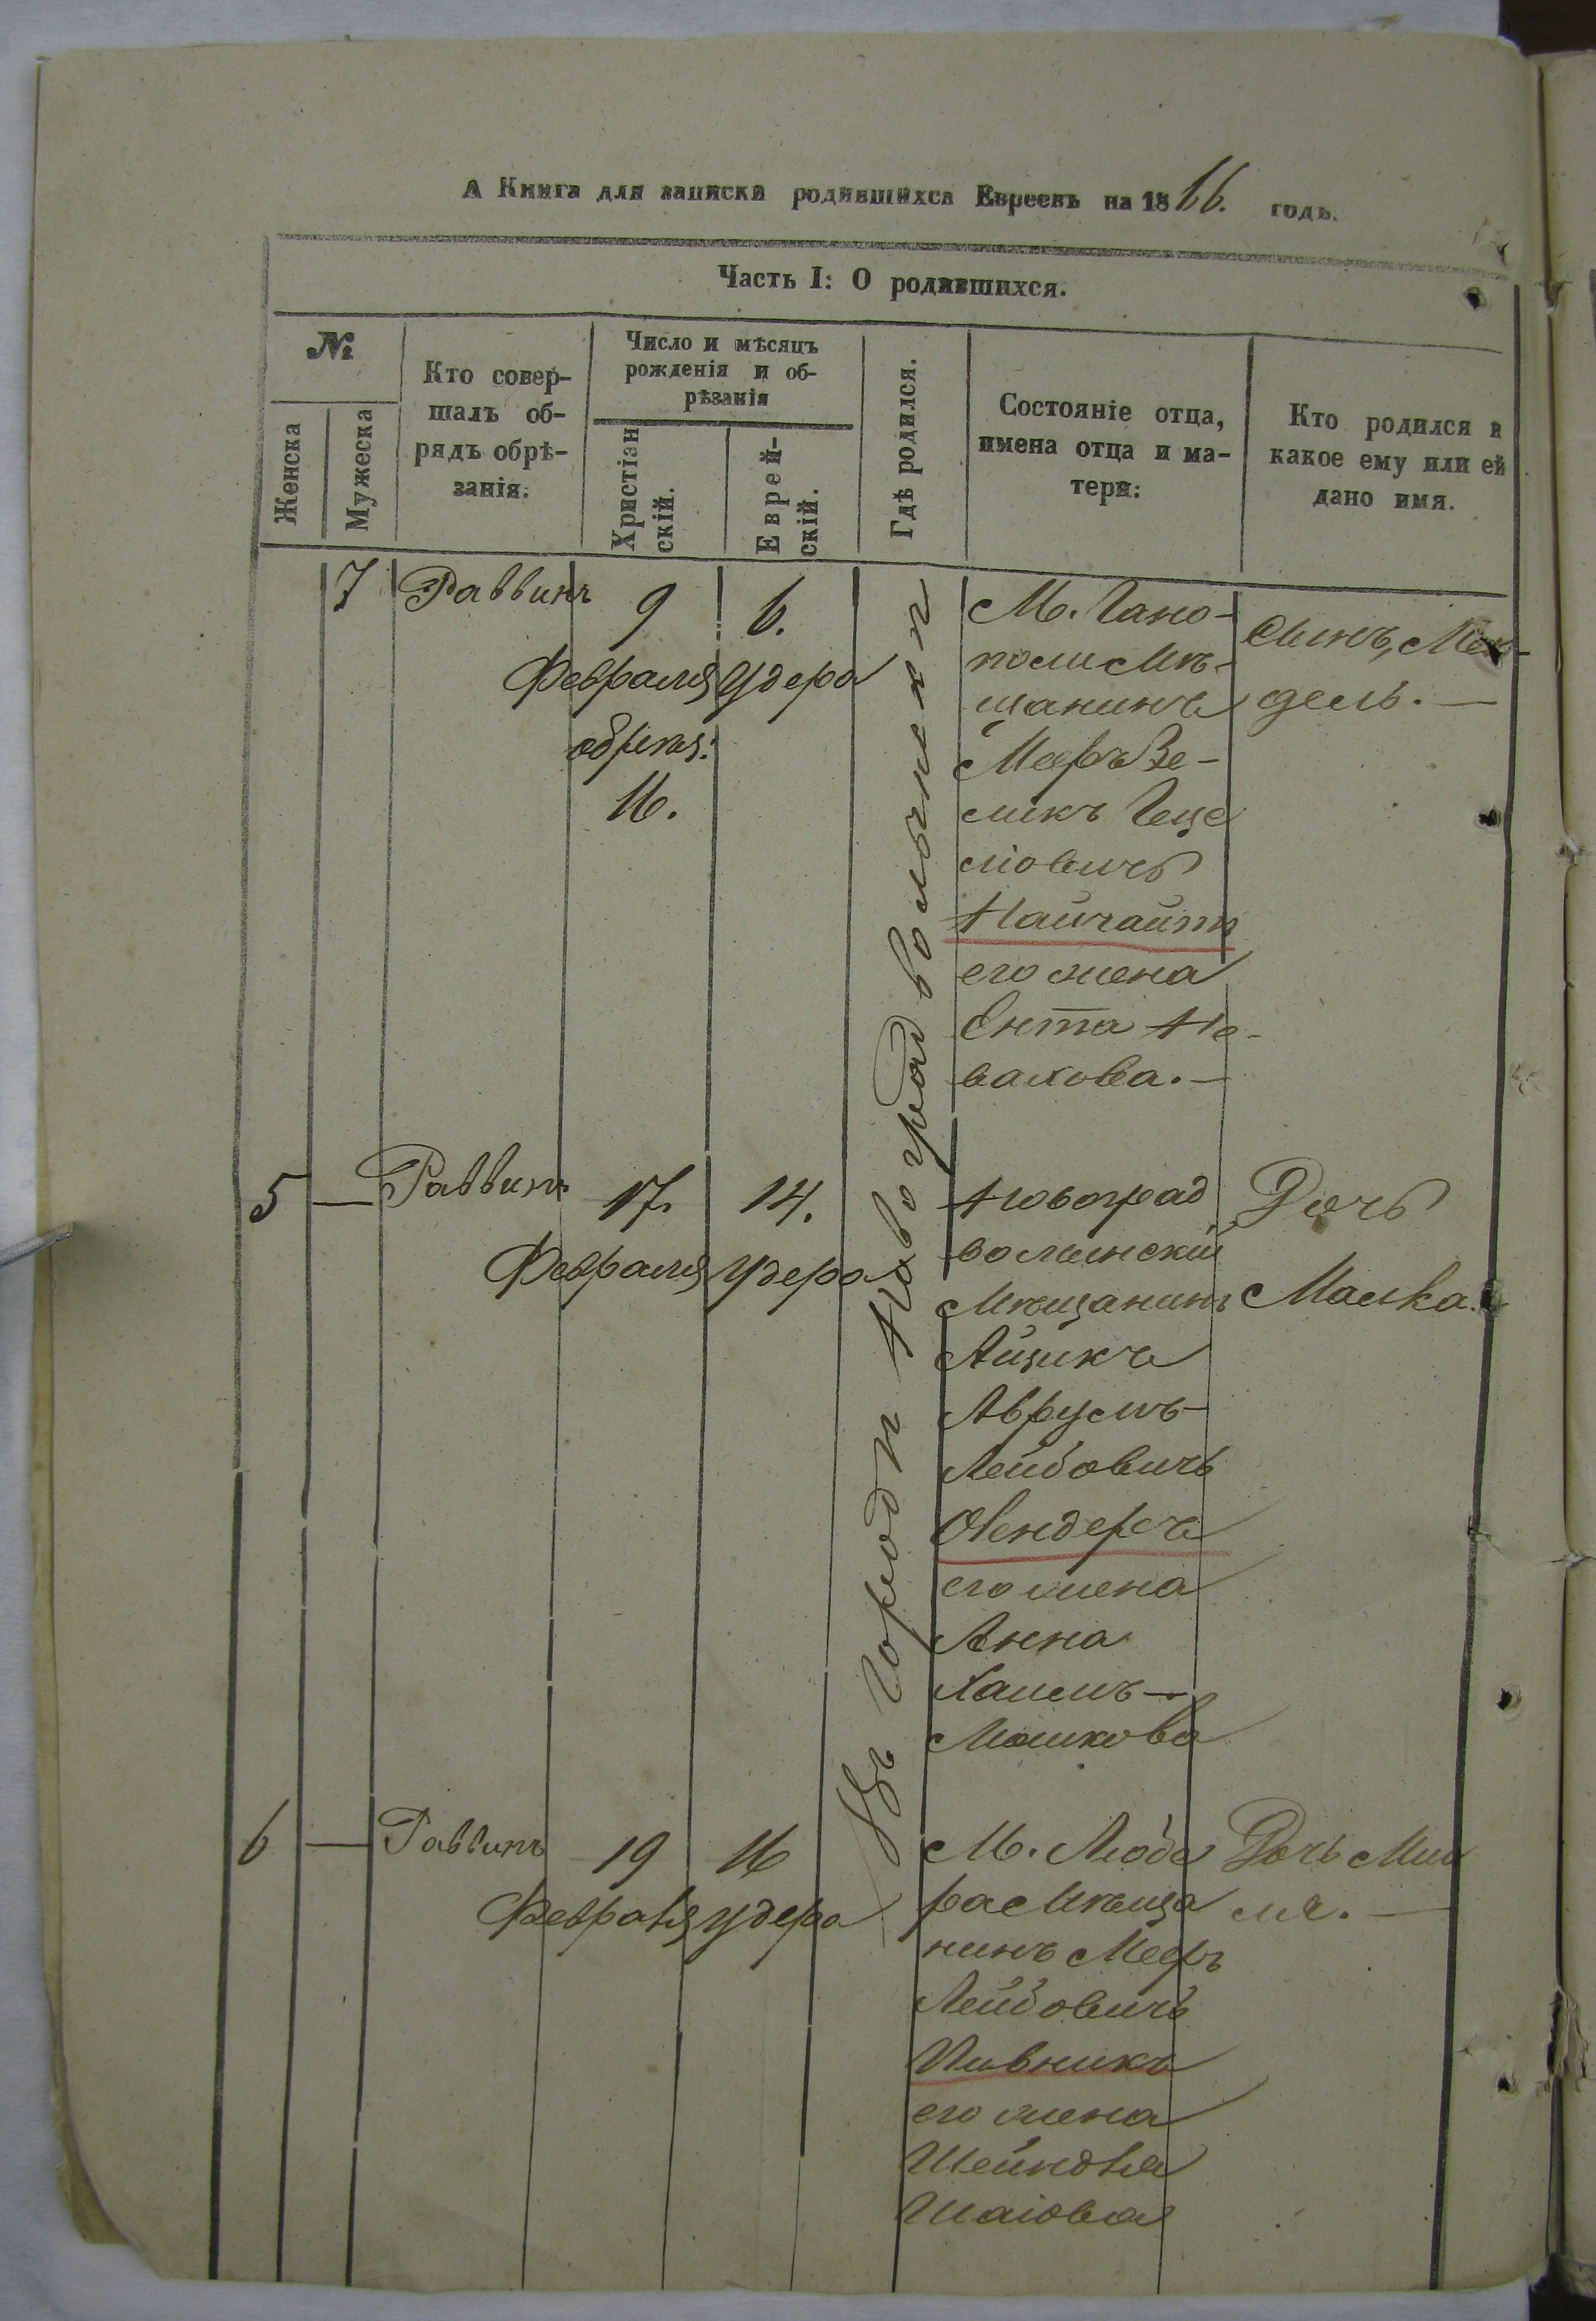 А Книга для записки родившихся Евреевъ на 1866. годъ.
Часть I: О родившихся.
№
Женска
Мужеска
Кто совер-
шалъ об-
рядъ обрѣ-
занія:
Число и мѣсяцъ
рожденія и об-
рѣзанія
Христіан
скій.
Еврей-
скій.
Гдѣ родился.
Состояніе отца,
имена отца и ма-
тери:
Кто родился и
какое ему или ей
дано имя.
Въ городѣ Новоградволынскѣ
7 Раввинъ 9 6.
Февраля Удера
обрѣзан:
16.
М.
поли Мѣ-
щанинъ
Мееръ Зе-
ликъ Геце
ліовичъ
Найчайтъ
его жена
Ента Но-
вахова. —
Синъ, Мен-
дель. —
5 — Раввинъ 17. 14.
Февраля Удера
Новоград
волинскій
Мѣщанинъ
Айзикъ
Аврумъ-
Лейбовичъ
его жена
Анна
Хаимъ-
Мошкова
Дочь
Малка.
6 — Раввинъ 19 16
Февраля Удера
М. Люба
ра Мѣща
нинъ Мееръ
Лейбовичъ
Пивникъ
его жена
Шейндля
Шаіова
Дочь Ми
ля. —